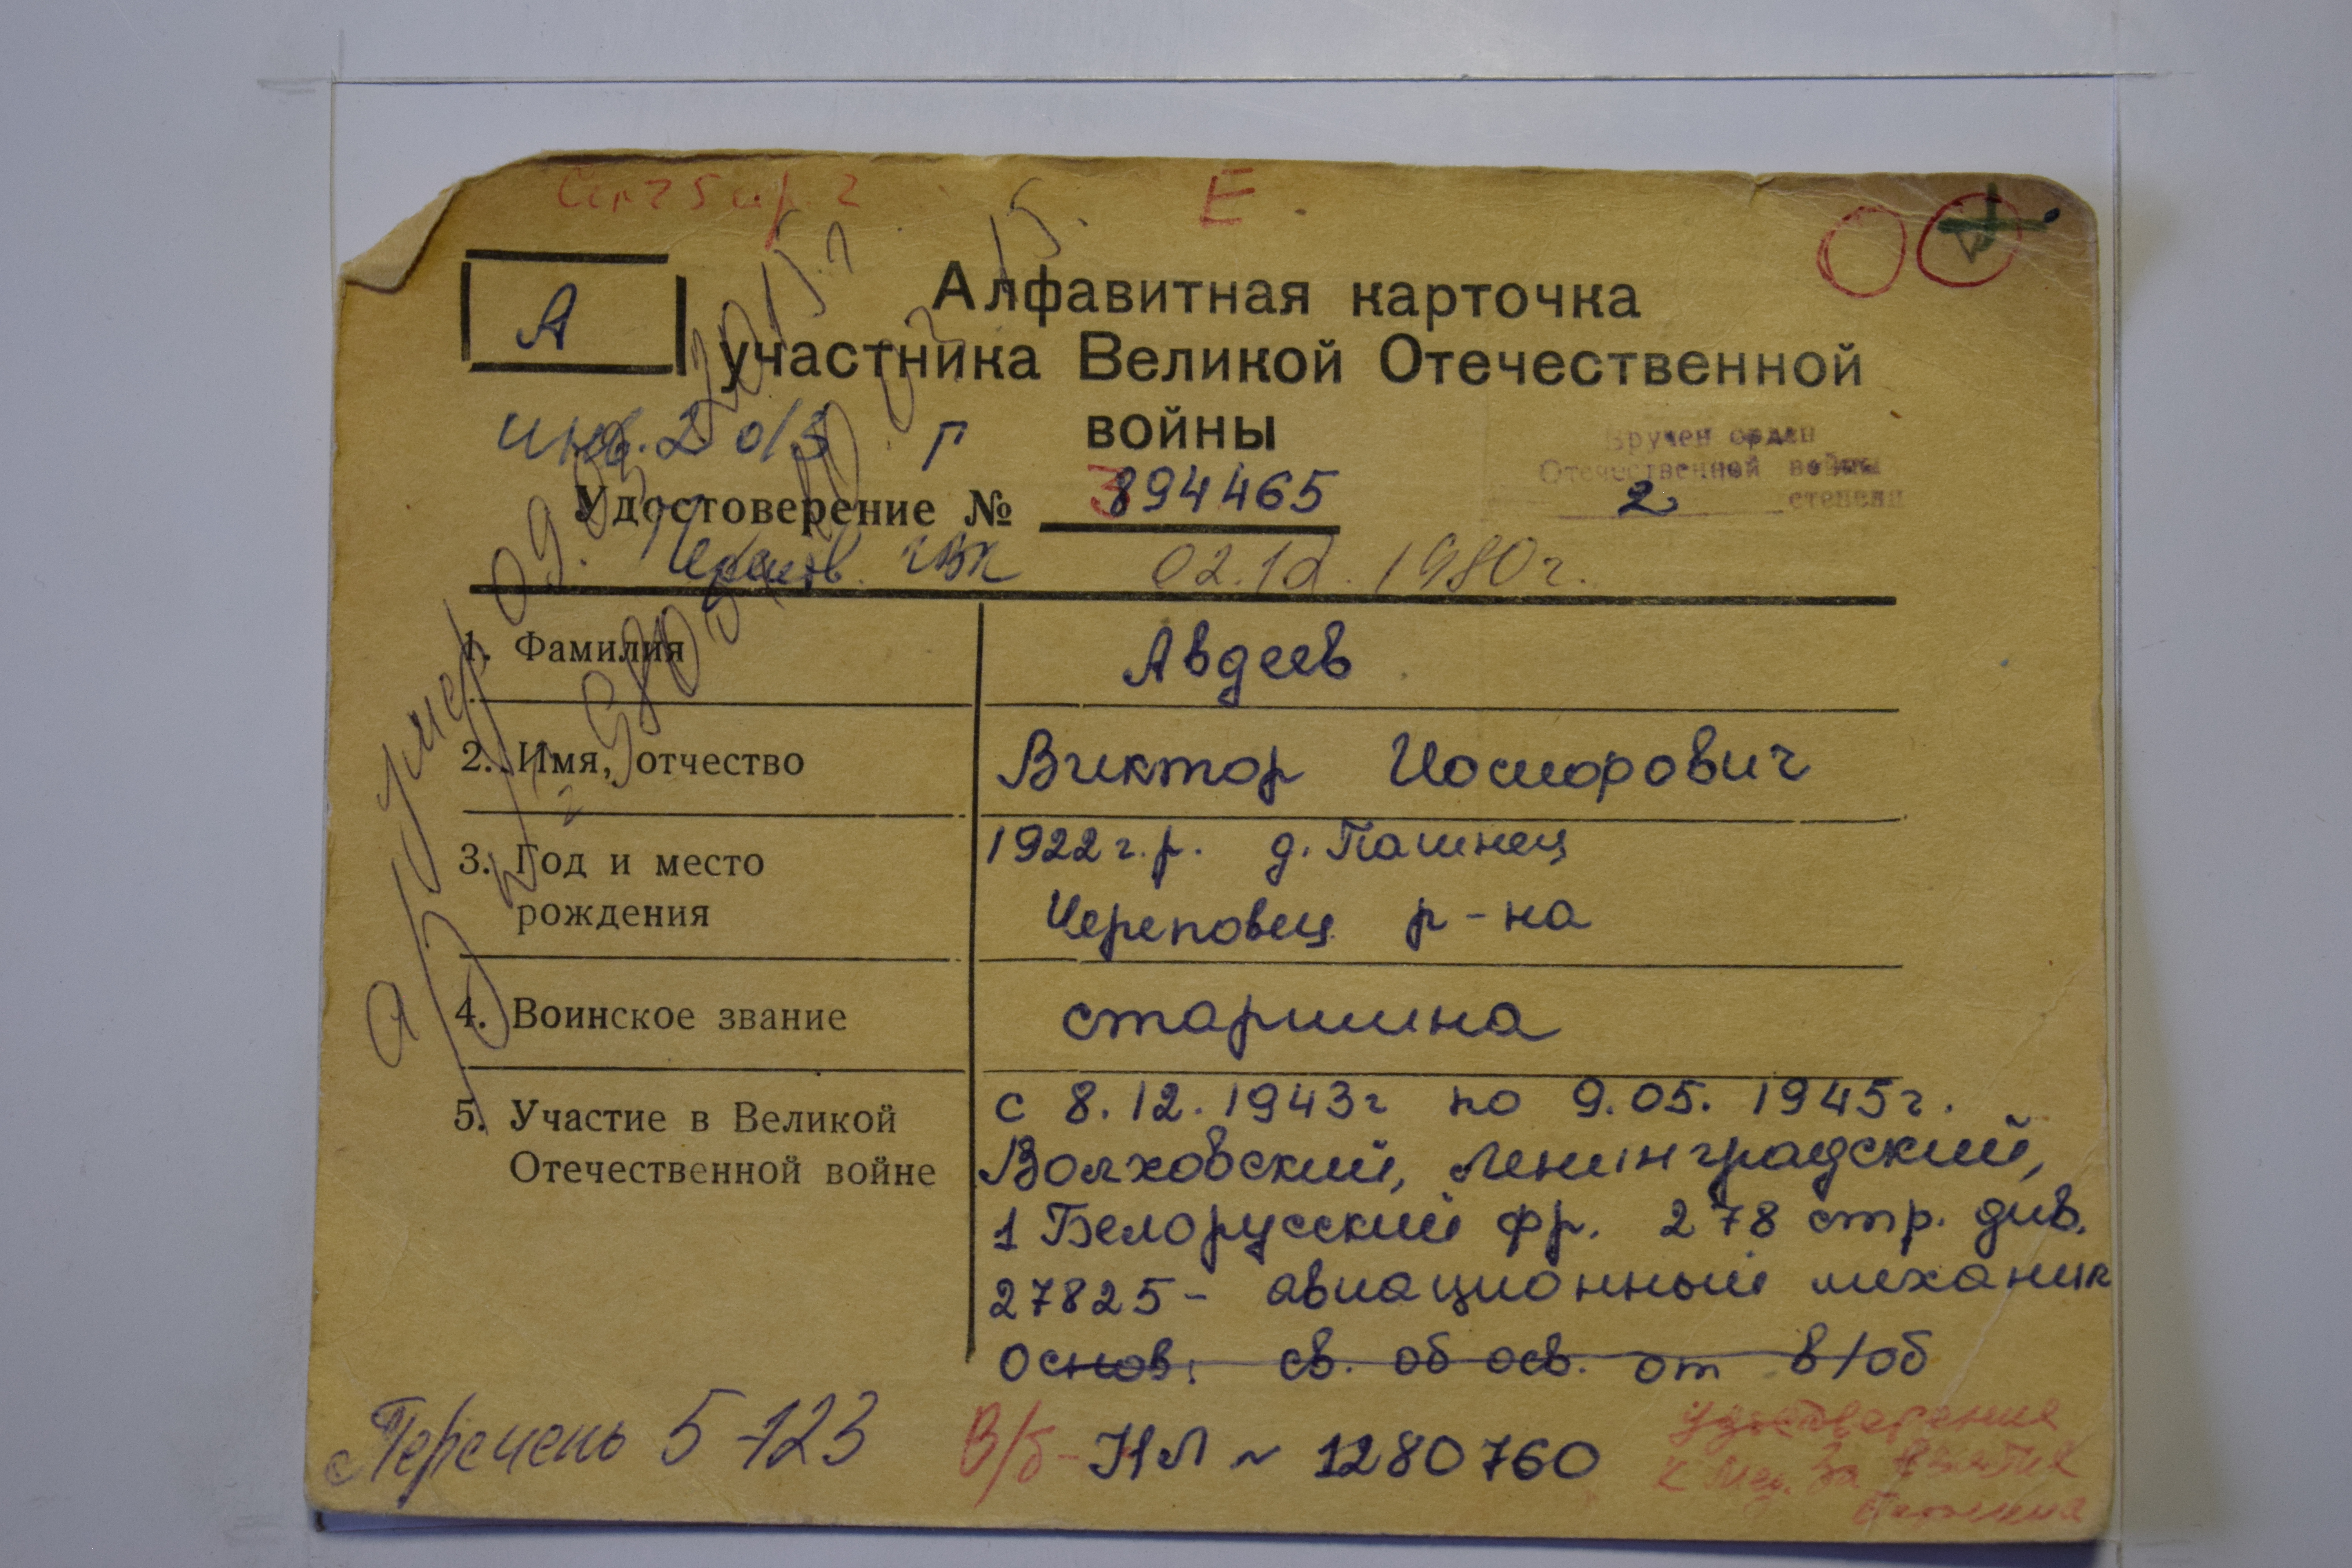 Е
А
Алфавитная карточка
участника Великой Отечественной
войны
инв. 2 о/з г
Вручен орден
Отечественной войны
2 степени
Удостоверение № 894465
Черепов. ГВК 02.12.1980г.
умер 09.03.
1. Фамилия Авдеев
2. Имя, отчество Виктор Иосифович
3. Год и место 1922 г.р. д. Пашнец
рождения Череповец р-на
4. Воинское звание старшина
5. Участие в Великой с 8.12.1943г по 9.05.1945г.
Отечественной войне Волховский, Ленинградский,
1 Белорусский фр. 278 стр. див.
27825 - авиационный механик
Основ. св. об осв. от в/об
Перечень 5-123 В/б - НЛ ~ 1280760
Удостоверение
к мед. За взятие
Берлина